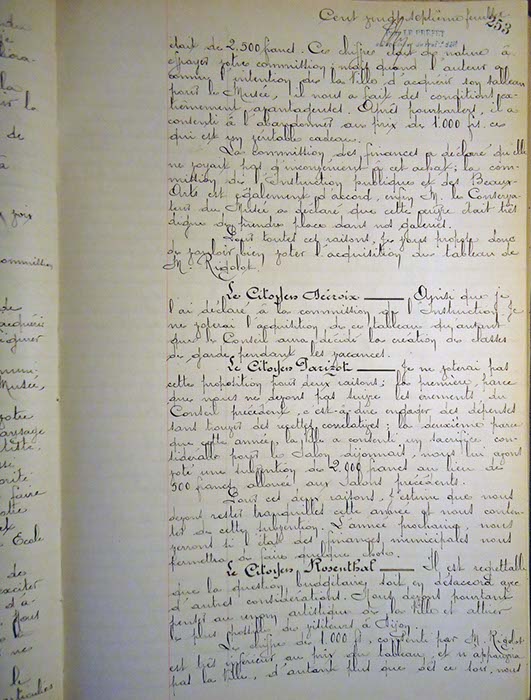 Cent vingt septième feuillet
253
LE PRÉFET
était de 2.500 francs. Ces chiffres était de nature à
effrayer votre commission; mais quand l'auteur a
connu l'intention de la Ville d'acquérir son tableau
pour le Musée, il nous a fait des conditions
avantageuses. Après pourparlers, il a
consenti à l'abandonner au prix de 1.000 frs. ce
qui est un véritable cadeau.
La commission des finances a déclaré qu'elle
ne voyait pas d'inconvénient à cet achat; la com-
mission de l'Instruction publique et des Beaux-
Arts est également d'accord, enfin M. le Conserva-
teur du Musée a déclaré que cette œuvre était très
digne de prendre place dans nos galeries.
Pour toutes ces raisons, je vous propose donc
de vouloir bien voter l'acquisition du tableau de
M. Rigolot.
Le Citoyen Décroix — Ainsi que je
l'ai déclaré à la commission de l'Instruction je
ne voterai l'acquisition de ce tableau qu'autant
que le Conseil aura décidé la création de classes
de garde pendant les vacances.
Le Citoyen Parizot — Je ne voterai pas
cette proposition pour deux raisons: la première, parce
que nous ne devons pas suivre les errements du
Conseil précédent, c'est-à-dire engager des dépenses
sans trouver des recettes corrélatives; la deuxième parce
que cette année, la ville a consenti un sacrifice con-
sidérable pour le Salon dijonnais, nous lui avons
voté une subvention de 2.000 francs au lieu de
500 francs alloués aux Salons précédents.
Pour ces deux raisons, j'estime que nous
devons rester tranquilles cette année et nous conten-
ter de cette subvention. L'année prochaine, nous
verrons si l'état des finances municipales nous
permettra de faire quelque chose.
Le Citoyen Rosenthal — Il est regrettable
que la question budgétaire soit en désaccord avec
d'autres considérations. Nous devons pourtant
penser au renom artistique de la Ville et attirer
le plus possible de visiteurs à Dijon.
Le chiffre de 1.000 f, consenti par M. Rigolot
est très inférieur au prix du tableau, et n'appauvrira
pas la Ville, d'autant plus que dès ce soir, nous